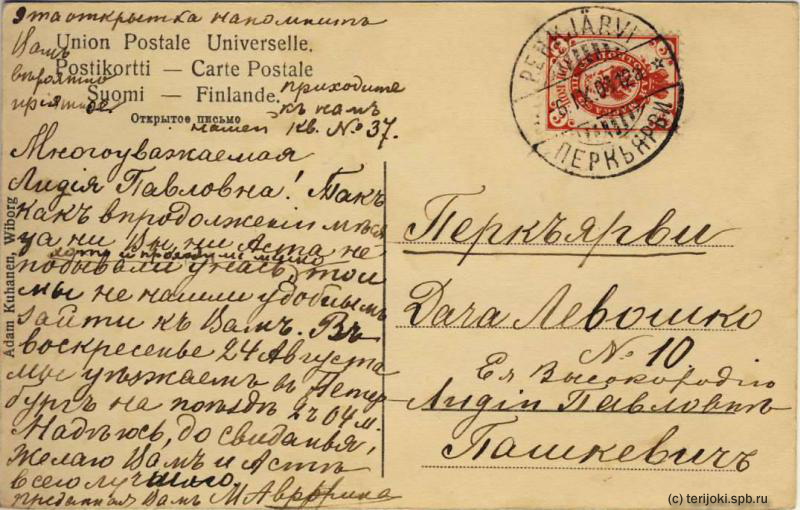 Эта открытка напомнитъ
Вамъ
вѣроятно
приходите
къ намъ
кв. № 37.
Union Postale Universelle.
Postikortti — Carte Postale
Suomi — Finlande.
Открытое письмо
Многоуважаемая
Лидія Павловна! Такъ
какъ впродолженіи мѣся
ца ни Вы ни Аста не
хотя и проходите мимо
побывали у насъ, то и
мы не нашли удобнымъ
зайти къ Вамъ. Въ
воскресенье 24 Августа
мы уѣзжаемъ въ Петер-
бургъ на поѣздѣ 2 ч 04 м.
Надѣюсь, до свиданья,
желаю Вамъ и Астѣ
всего лучшаго.
преданная Вамъ М
Adam Kuhanen, Wiborg
PERKJÄRVI
ПЕРКЪЯРВИ
Перкъярви
Дача Левошко
№ 10
Ея Высокородію
Лидіи Павловнѣ
Пашкевичъ
(c) terijoki.spb.ru